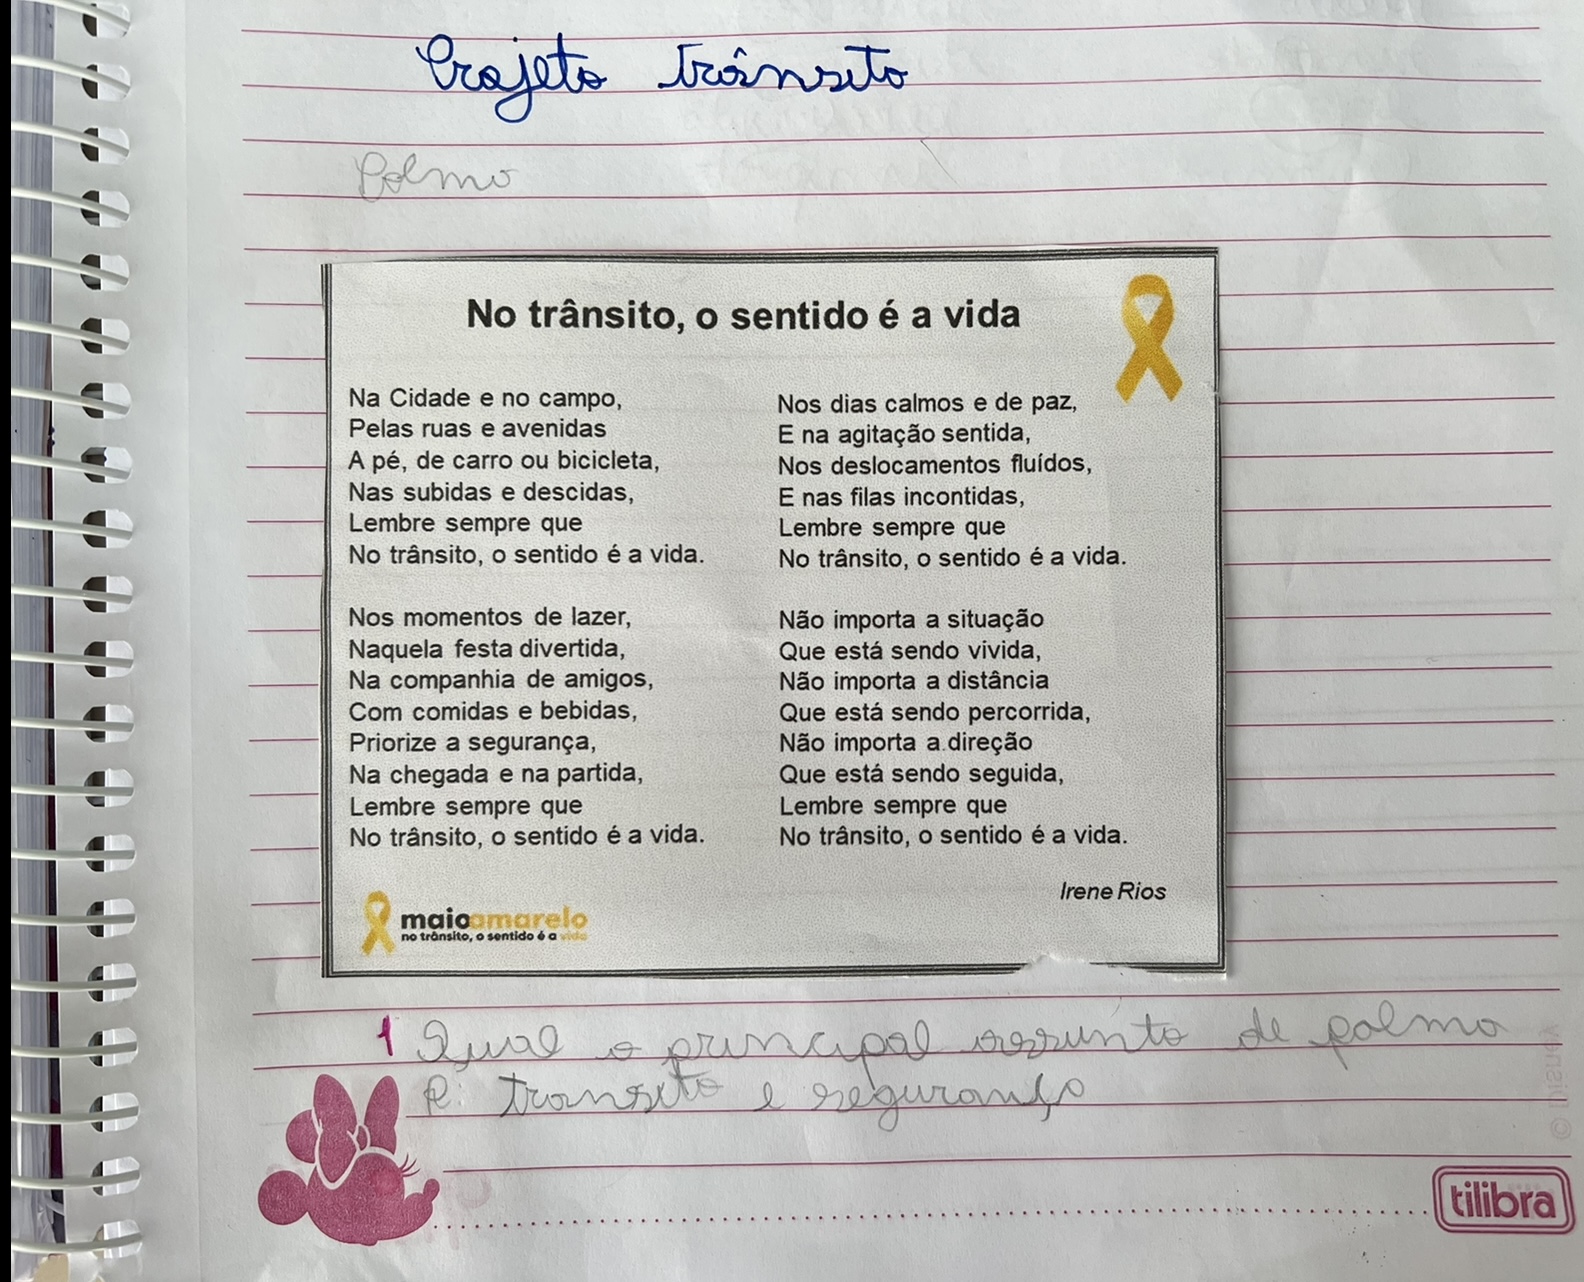 Projeto trânsito
Polmo
No trânsito, o sentido é a vida
Na Cidade e no campo,
Pelas ruas e avenidas
A pé, de carro ou bicicleta,
Nas subidas e descidas,
Lembre sempre que
No trânsito, o sentido é a vida.
Nos momentos de lazer,
Naquela festa divertida,
Na companhia de amigos,
Com comidas e bebidas,
Priorize a segurança,
Na chegada e na partida,
Lembre sempre que
No trânsito, o sentido é a vida.
Nos dias calmos e de paz,
E na agitação sentida,
Nos deslocamentos fluídos,
E nas filas incontidas,
Lembre sempre que
No trânsito, o sentido é a vida.
Não importa a situação
Que está sendo vivida,
Não importa a distância
Que está sendo percorrida,
Não importa a direção
Que está sendo seguida,
Lembre sempre que
No trânsito, o sentido é a vida.
Irene Rios
maioamarelo
no trânsito, o sentido é a vida
1 Qual o principal assunto de polmo
R: transito e segurança
© Disney
tilibra